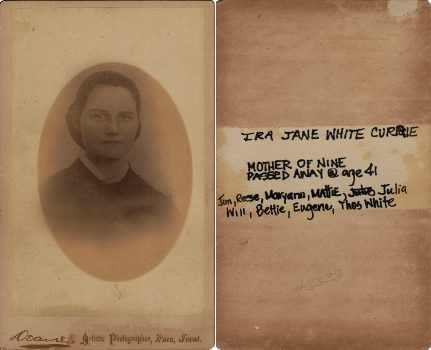 Deane, Artistic Photographer, Waco, Texas.
IRA JANE WHITE CURRIE
MOTHER OF NINE
PASSED AWAY @ age 41
Jim, Reese, Maryann, Mattie, Julia
Will, Bettie, Eugene, Thos White